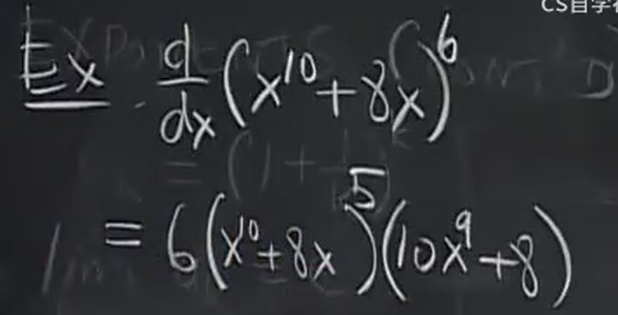 CS自学
Ex d/dx (x¹⁰ + 8x)⁶
= 6(x¹⁰ + 8x)⁵(10x⁹ + 8)